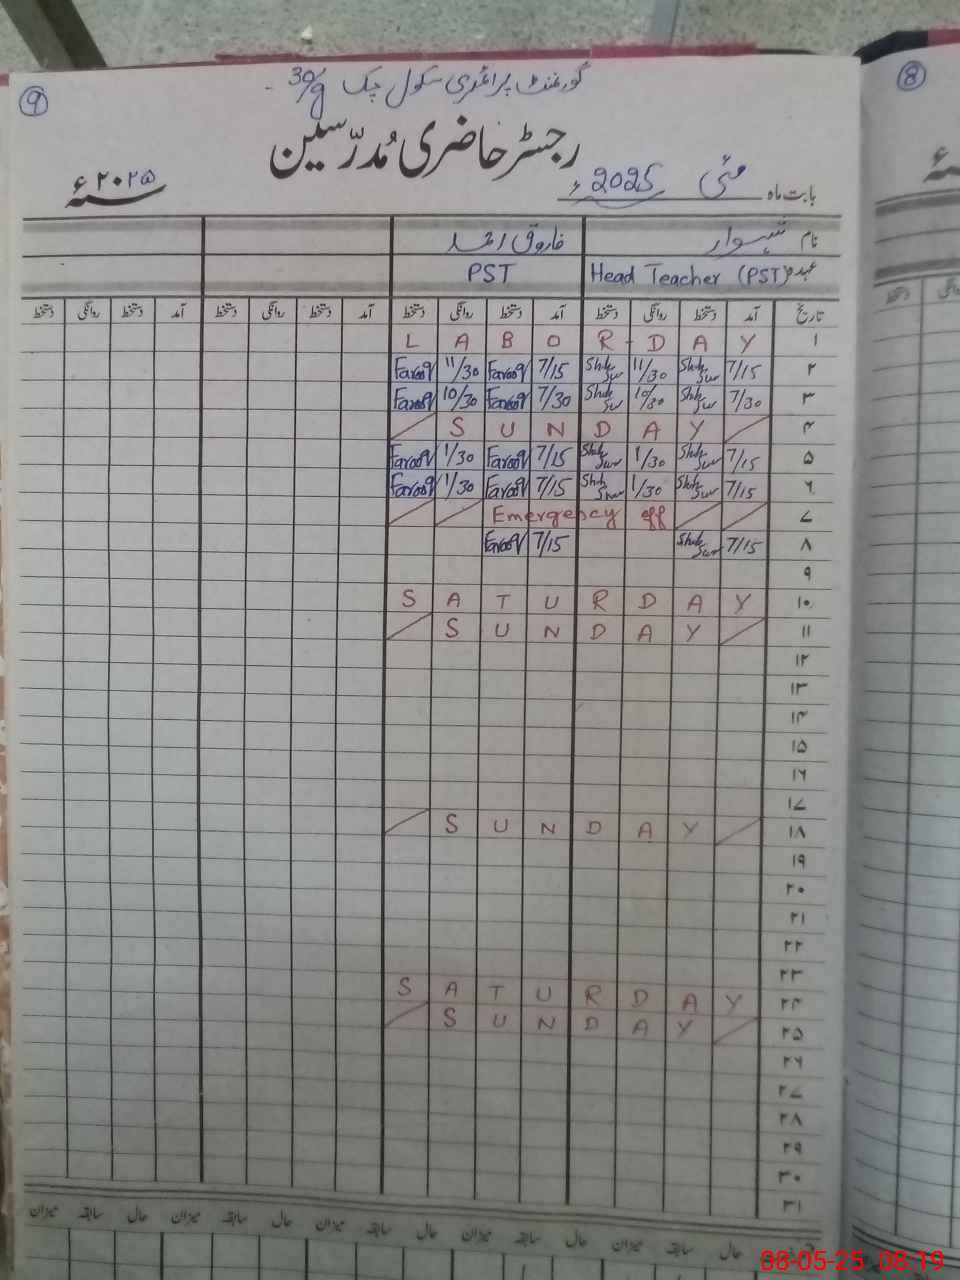 ۹
۸
گورنمنٹ پرائمری سکول چک 30/g
رجسٹر حاضری مُدرّسین
بابت ماہ مئی 2025ء
سنہ ۲۰۲۵ء
نام شہسوار فاروق احمد
عہدہ Head Teacher (PST) PST
تاریخ آمد دستخط روانگی دستخط آمد دستخط روانگی دستخط آمد دستخط روانگی دستخط آمد دستخط روانگی دستخط
۱ L A B O R - D A Y
۲ 7/15 Shah Swr 11/30 Shah Swr 7/15 Farooq 11/30 Farooq
۳ 7/30 Shah Swr 10/30 Shah Swr 7/30 Farooq 10/30 Farooq
۴ S U N D A Y
۵ 7/15 Shah Swr 1/30 Shah Swr 7/15 Farooq 1/30 Farooq
۶ 7/15 Shah Swr 1/30 Shah Swr 7/15 Farooq 1/30 Farooq
۷ Emergency off
۸ 7/15 Shah Swr 7/15 Farooq
۹
۱۰ S A T U R D A Y
۱۱ S U N D A Y
۱۲
۱۳
۱۴
۱۵
۱۶
۱۷
۱۸ S U N D A Y
۱۹
۲۰
۲۱
۲۲
۲۳
۲۴ S A T U R D A Y
۲۵ S U N D A Y
۲۶
۲۷
۲۸
۲۹
۳۰
۳۱
حال سابقہ میزان حال سابقہ میزان حال سابقہ میزان حال سابقہ میزان حال سابقہ میزان
08-05-25 08:19